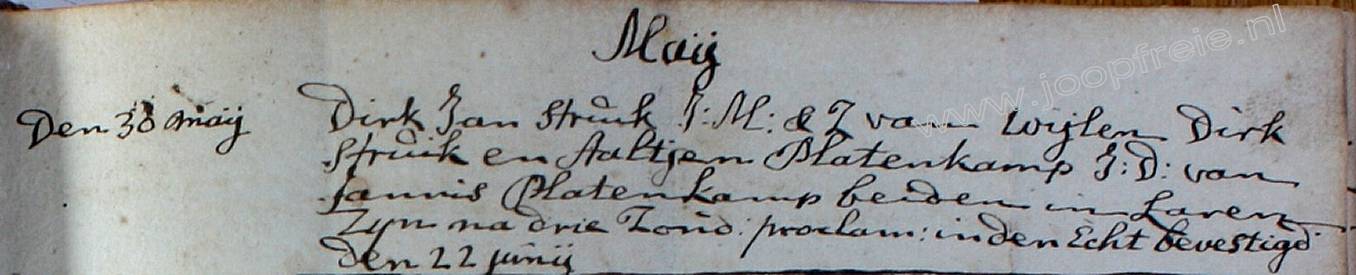 Maij
Den 30 maij
Dirk Jan Struik J: M: & Z van wijlen Dirk
Struik en Aaltjen Platenkamp J: D: van
Jannis Platenkamp beiden in Laren
Zyn na drie Zond: proclam: in den Echt bevestigd
den 22 junij
www.joopfreie.nl